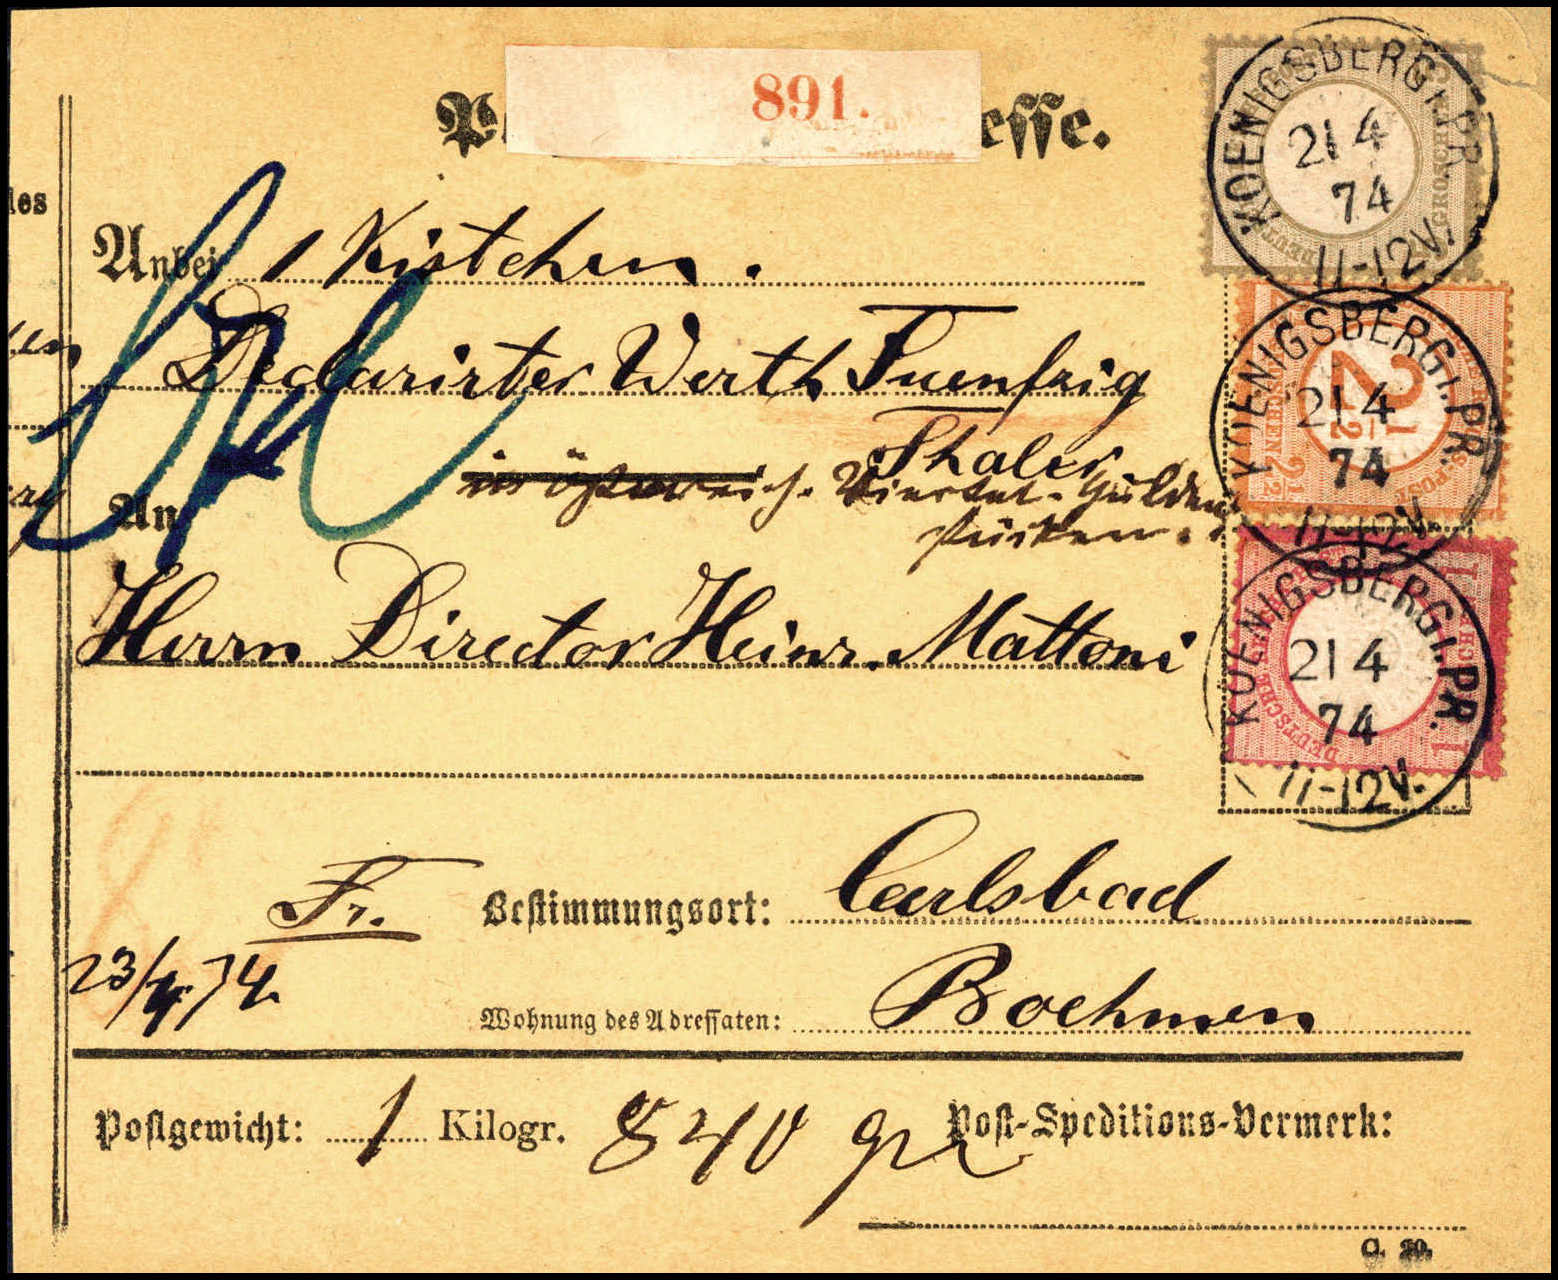 891.
esse.
les
Anbei 1 Kistchen.
Declarirter Werth Fuenfzig
Thaler
in österreich. Viertel-Gulden
stücken.
An
Herrn Director Heinr. Mattoni
Fr. Bestimmungsort: Carlsbad
23/4 74.
Wohnung des Adressaten: Boehmen
Postgewicht: 1 Kilogr. 840 gr Post-Speditions-Vermerk:
C. 20.
KOENIGSBERG I. PR.
21 4
74
11-12V.
GROSCHEN
KOENIGSBERG I. PR.
21 4
74
11-12V.
2½
KOENIGSBERG I. PR.
21 4
74
11-12V.
DEUTSCHE
1
1